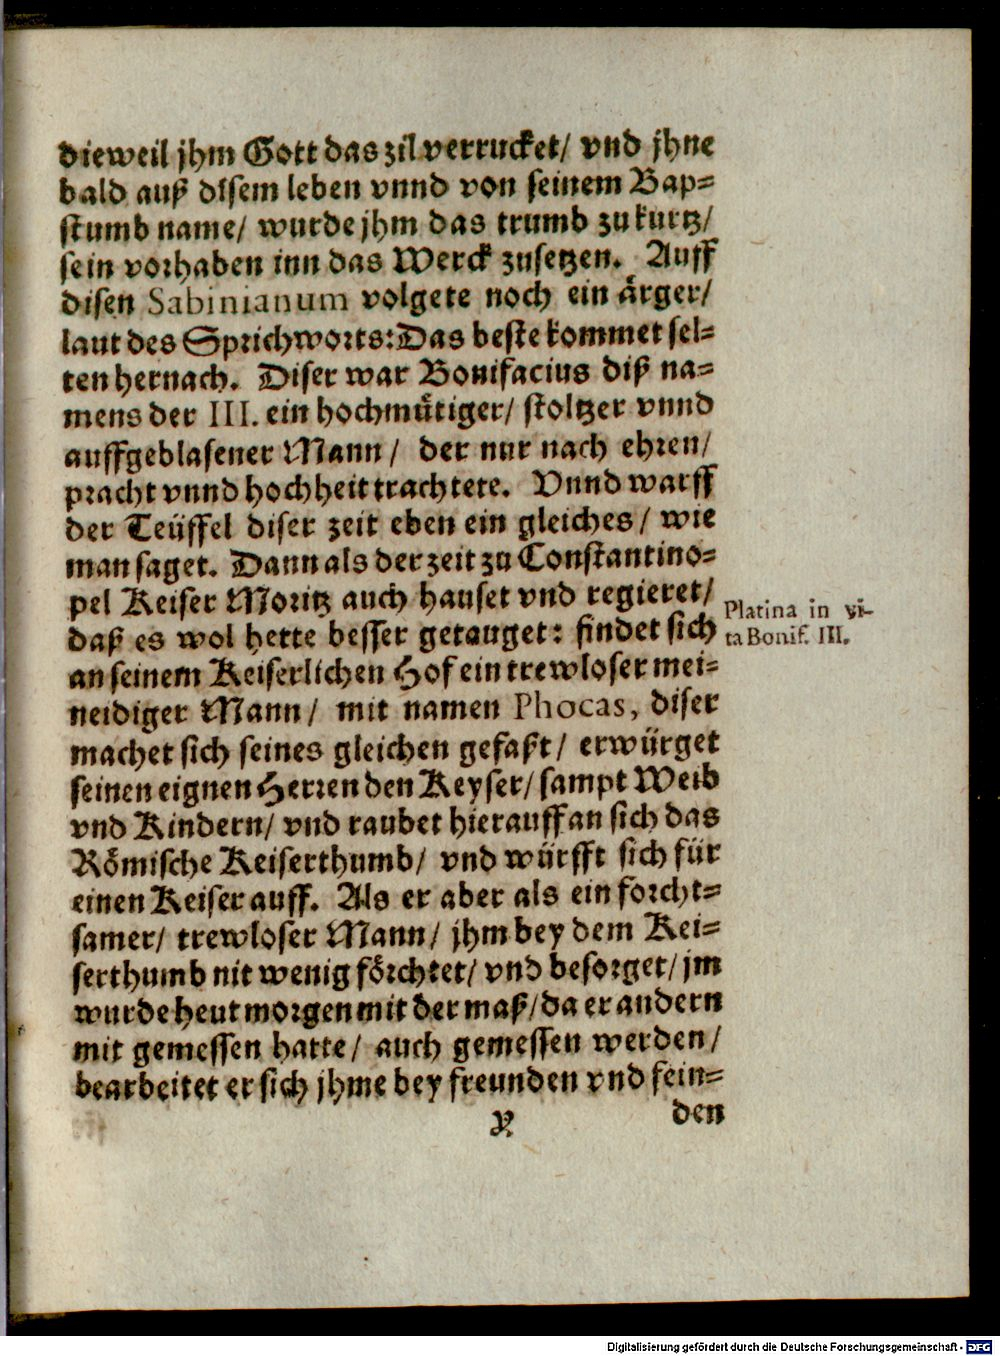 dieweil jhm Gott das zil verrucket/ vnd jhne
bald auß disem leben vnnd von seinem Bap=
stumb name/ wurde jhm das trumb zu kurtz/
sein vorhaben inn das Werck zusetzen. Auff
disen Sabinianum volgete noch ein aͤrger/
laut des Sprichworts: Das beste kommet sel=
ten hernach. Diser war Bonifacius diß na=
mens der III. ein hochmuͤtiger/ stoltzer vnnd
auffgeblasener Mann/ der nur nach ehren/
pracht vnnd hochheit trachtete. Vnnd warff
der Teüffel diser zeit eben ein gleiches/ wie
man saget. Dann als der zeit zu Constantino=
pel Keiser Moritz auch hauset vnd regieret/
daß es wol hette besser getauget: findet sich
an seinem Keiserlichen Hof ein trewloser mei=
neidiger Mann/ mit namen Phocas, diser
machet sich seines gleichen gefaßt/ erwürget
seinen eignen Herren den Keyser/ sampt Weib
vnd Kindern/ vnd raubet hierauff an sich das
Roͤmische Keiserthumb/ vnd würfft sich für
einen Keiser auff. Als er aber als ein forcht=
samer/ trewloser Mann/ jhm bey dem Kei=
serthumb nit wenig foͤrchtet/ vnd besorget/ jm
wurde heut morgen mit der maß/ da er andern
mit gemessen hatte/ auch gemessen werden/
bearbeitet er sich jhme bey freunden vnd fein=
X den
Platina in vi-
ta Bonif. III.
Digitalisierung gefördert durch die Deutsche Forschungsgemeinschaft - DFG